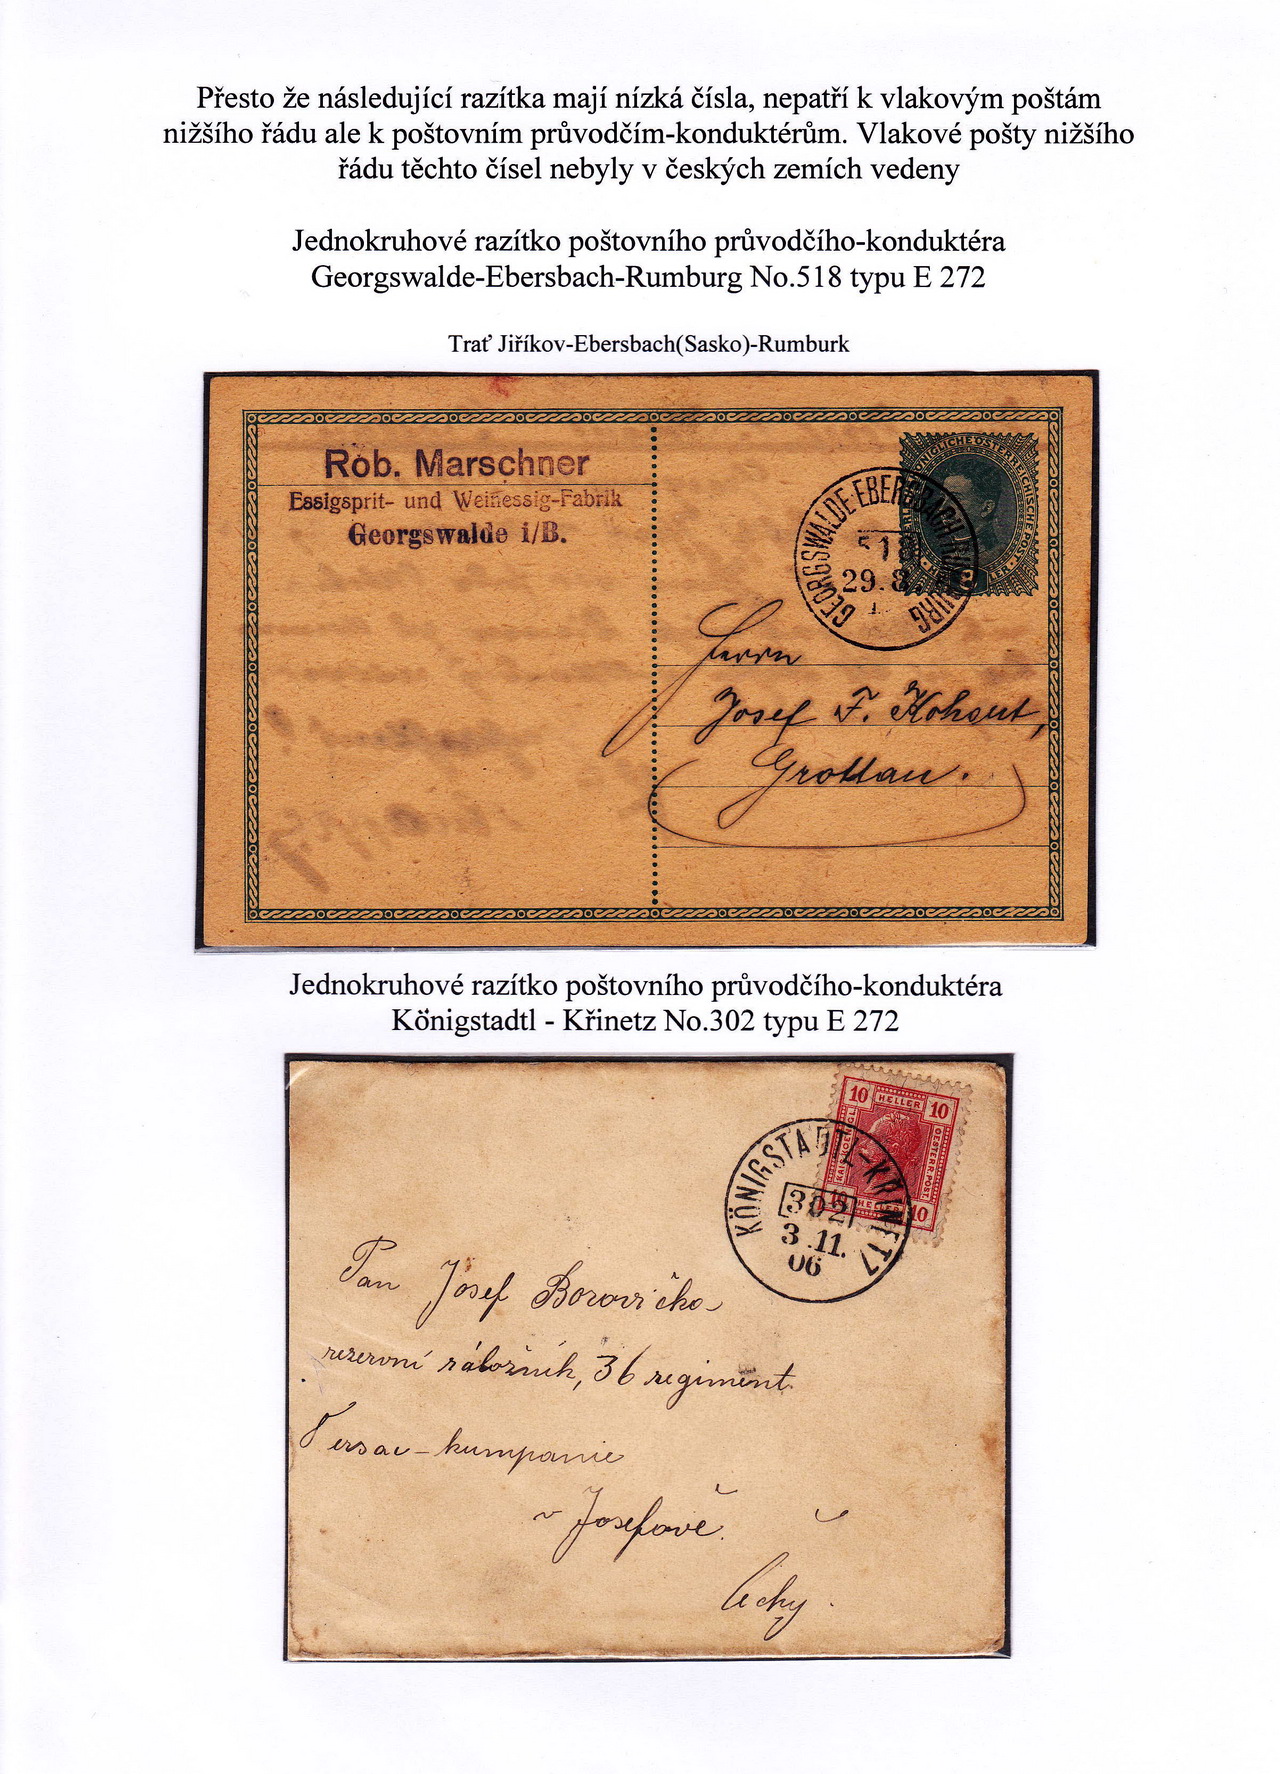 Přesto že následující razítka mají nízká čísla, nepatří k vlakovým poštám
nižšího řádu ale k poštovním průvodčím-konduktérům. Vlakové pošty nižšího
řádu těchto čísel nebyly v českých zemích vedeny
Jednokruhové razítko poštovního průvodčího-konduktéra
Georgswalde-Ebersbach-Rumburg No.518 typu E 272
Trať Jiříkov-Ebersbach(Sasko)-Rumburk
Rob. Marschner
Essigsprit- und Weinessig-Fabrik
Georgswalde i/B.
GEORGSWALDE-EBERSBACH-RUMBURG
518
29.8
Herrn
Josef F. Kohout,
Grottau.
Jednokruhové razítko poštovního průvodčího-konduktéra
Königstadtl - Křinetz No.302 typu E 272
10 HELLER 10
KÖNIGSTADTL-KŘINETZ
302
3.11.
06
10 HELLER 10
Pan Josef Borovička
rezervní záložník, 36 regiment.
kumpanie
v Josefově.
Čechy.